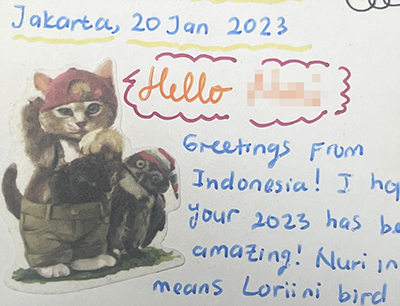 Jakarta, 20 Jan 2023
Hello
Greetings From
Indonesia! I
your 2023 has
amazing! Nuri in
means Loriini bird